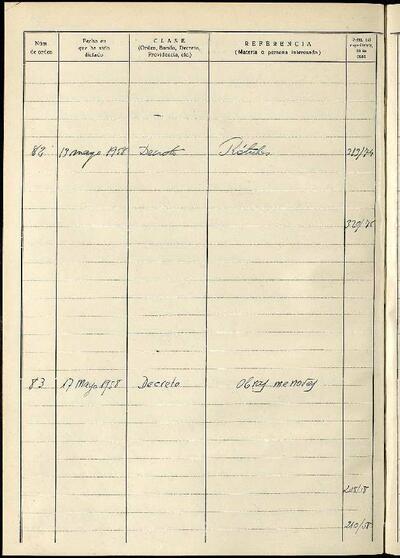 Núm. de orden
Fecha en que ha sido dictado
CLASE
(Orden, Bando, Decreto, Providencia, etc.)
REFERENCIA
(Materia o persona interesada)
Núm. del expediente
82 13 mayo 1958 Decreto Rótulos
83 17 Mayo 1958 Decreto Obras menores
210/58